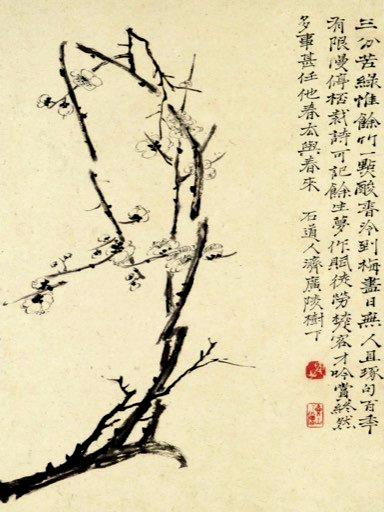 三分苦綠惟餘竹一點酸香冷到梅盡日無人且琢句百年
有限慢停杯裁詩可記餘生夢作賦徒勞楚客才吟賞終然
多事甚任他春去與春來 石道人濟廣陵樹下